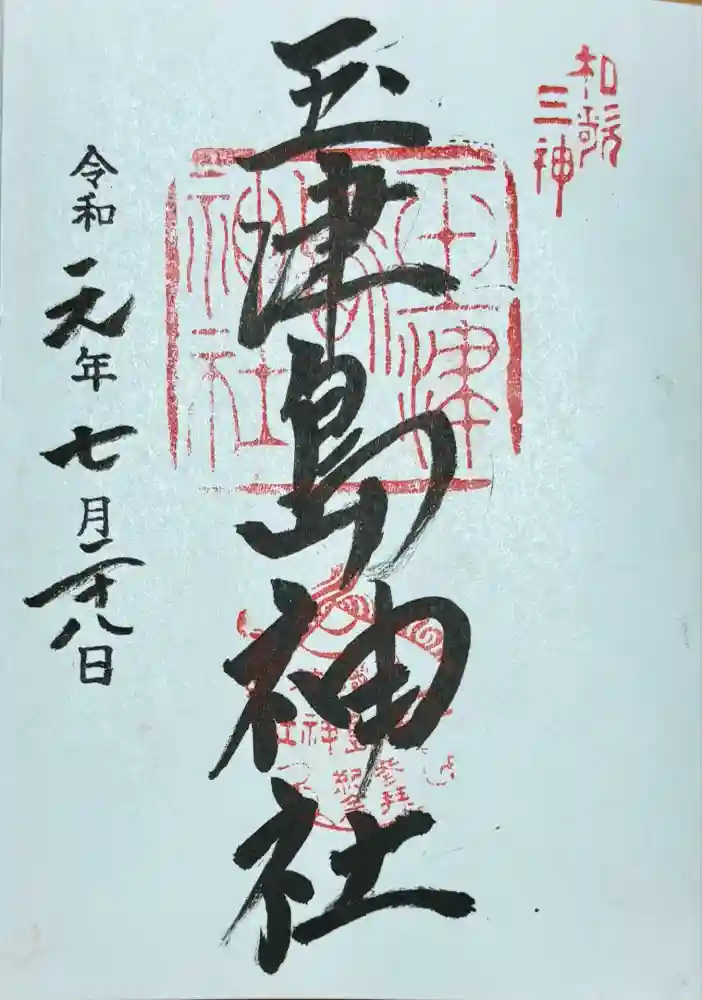 和歌
三神
玉津島神社
玉津
島
神社
参拝
紀念
令和元年七月二十八日